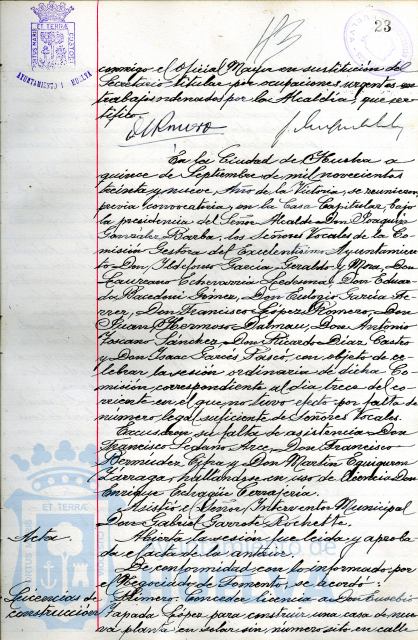 PORTUS MARIS ET TERRÆ CUSTODIA
AYUNTAMIENTO HUELVA
23
conmigo el Oficial Mayor en sustitución del
Secretario titular por ocupaciones urgentes en
trabajos ordenados por la Alcaldía, que cer-
tifico.
En la Ciudad de Huelva a
quince de Septiembre de mil novecientos
treinta y nueve, Año de la Victoria, se reunieron,
previa convocatoria, en la Casa Capitular, bajo
la presidencia del Señor Alcalde Don Joaquín
González Barba, los Señores Vocales de la Co-
misión Gestora del Excelentísimo Ayuntamien-
to Don Ildefonso García Geraldo y Mora, Don
Laureano Echevarría Ledesma, Don Eduar-
do Pacedoni Gómez, Don Eulogio García He-
rrer, Don Francisco López Romero, Don
Juan Hermoso Dalmau, Don Antonio
Toscano Sánchez, Don Ricardo Díaz Castro
y Don Isaac Garcés Tosco, con objeto de ce-
lebrar la sesión ordinaria de dicha Co-
misión correspondiente al día trece del co-
rriente en el que no tuvo efecto por falta de
número legal suficiente de Señores Vocales.
Excusaron su falta de asistencia Don
Francisco Seguro Arce, Don Francisco
Bermúdez Cifra y Don Martín Eguiguren
Zarraga, hallándose en uso de licencia Don
Enrique Echagüe Cenajería.
Asistió el Señor Interventor Municipal
Don Gabriel Garrote Rochette.
Acta. Abierta la sesión fue leída y aproba-
da el acta de la anterior.
De conformidad con lo informado por
el Negociado de Fomento, se acordó:
Licencias de Primero: Conceder licencia a Don Eusebio
construcción Zapada López para construir una casa de nue-
va planta en solar sin número sito en calle